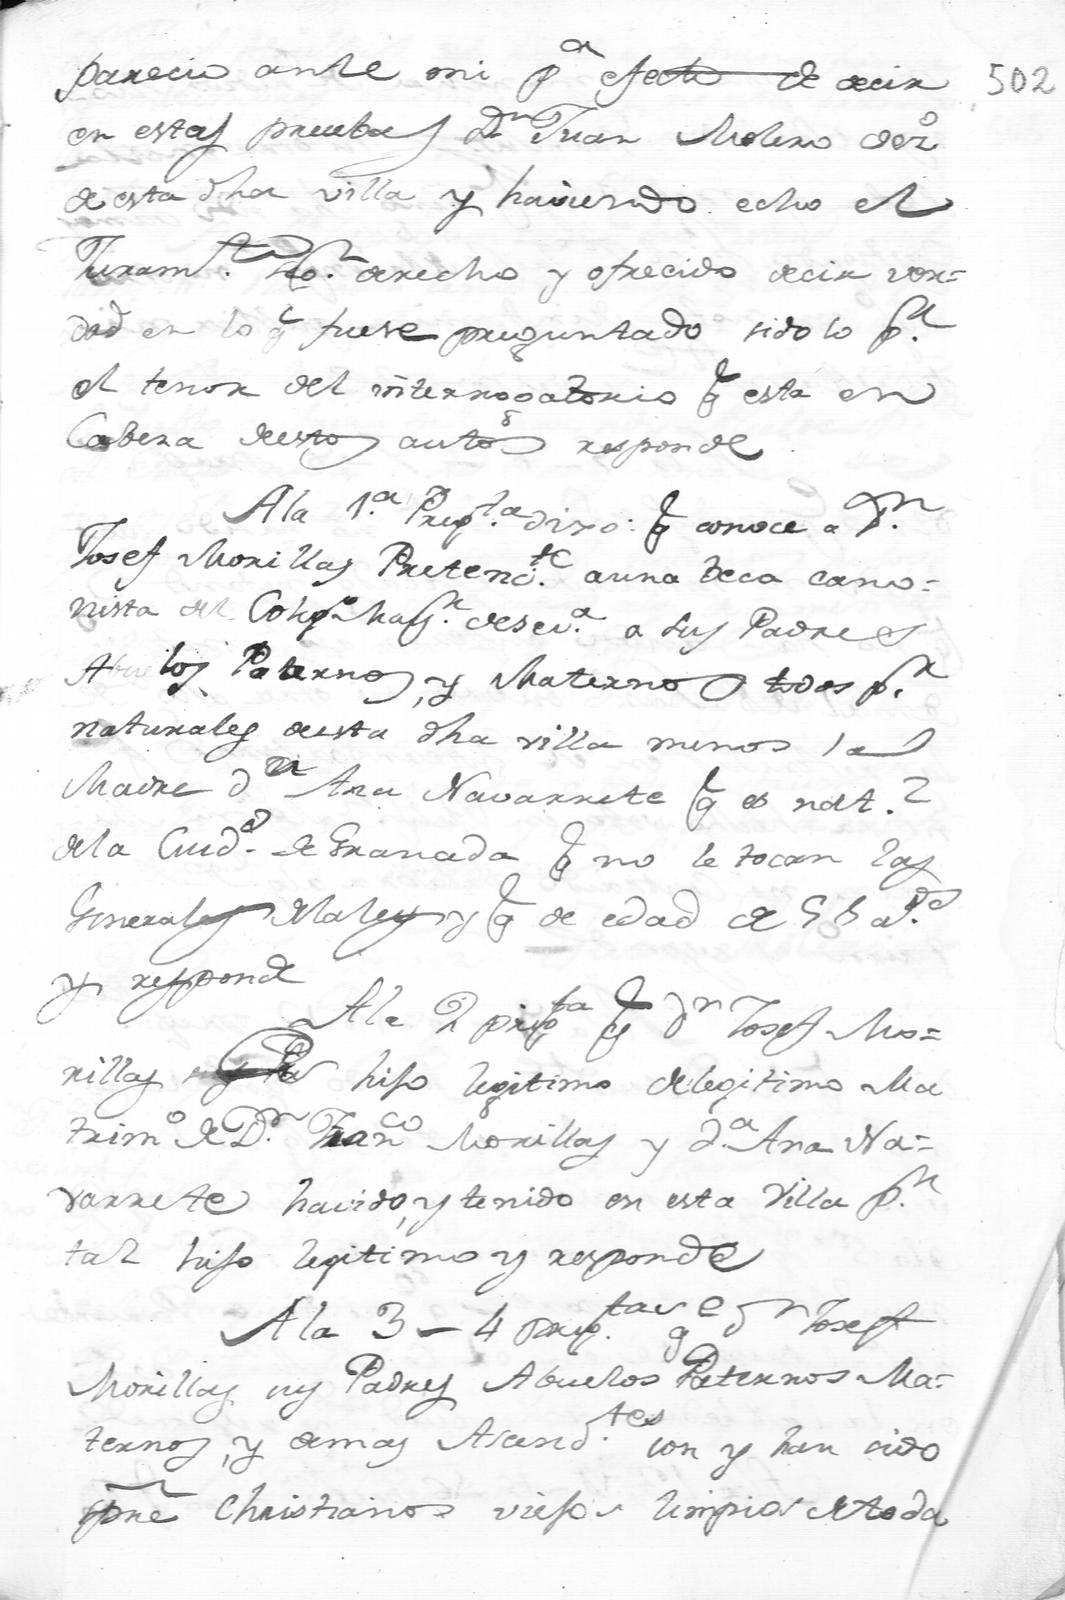 parecio ante mi pª efecto de decir 502
en estas pruebas Dn Juan Molero vezº
de esta dha villa y haviendo echo el
Juramto. sgn. derecho y ofrecido decir ver=
dad en lo q fuese preguntado sidolo pr.
el tenor del interrogatorio q está en
Cabeza destos autos responde
Ala 1.ª Pregta. dixo: q conoce a Dn.
Josef Morillas Pretendte. auna beca cano=
nista del Colegº maγr. desevª. a sus Padres
Abuelos Paternos, y Maternos todos pr.
naturales desta dha villa menos la
Madre dª Ana Navarrete q es natl.
dela Ciudad. de Granada q no le tocan las
Generales dela ley y q es de edad de as.
y responde
Ala 2 pregta q dn Josef Mo=
rillas es hijo legitimo delegitimo Ma
trimº de Dn. Franco Morillas y d.ª Ana Na=
varrete havido, y tenido en esta Villa pr.
tal hijo legitimo y responde
Ala 3 – 4 preg.tas qe dn Josef
Morillas sus Padres Abuelos Paternos Ma=
ternos, y demas Ascend.tes son y han sido
spre Christianos viejos limpios de toda